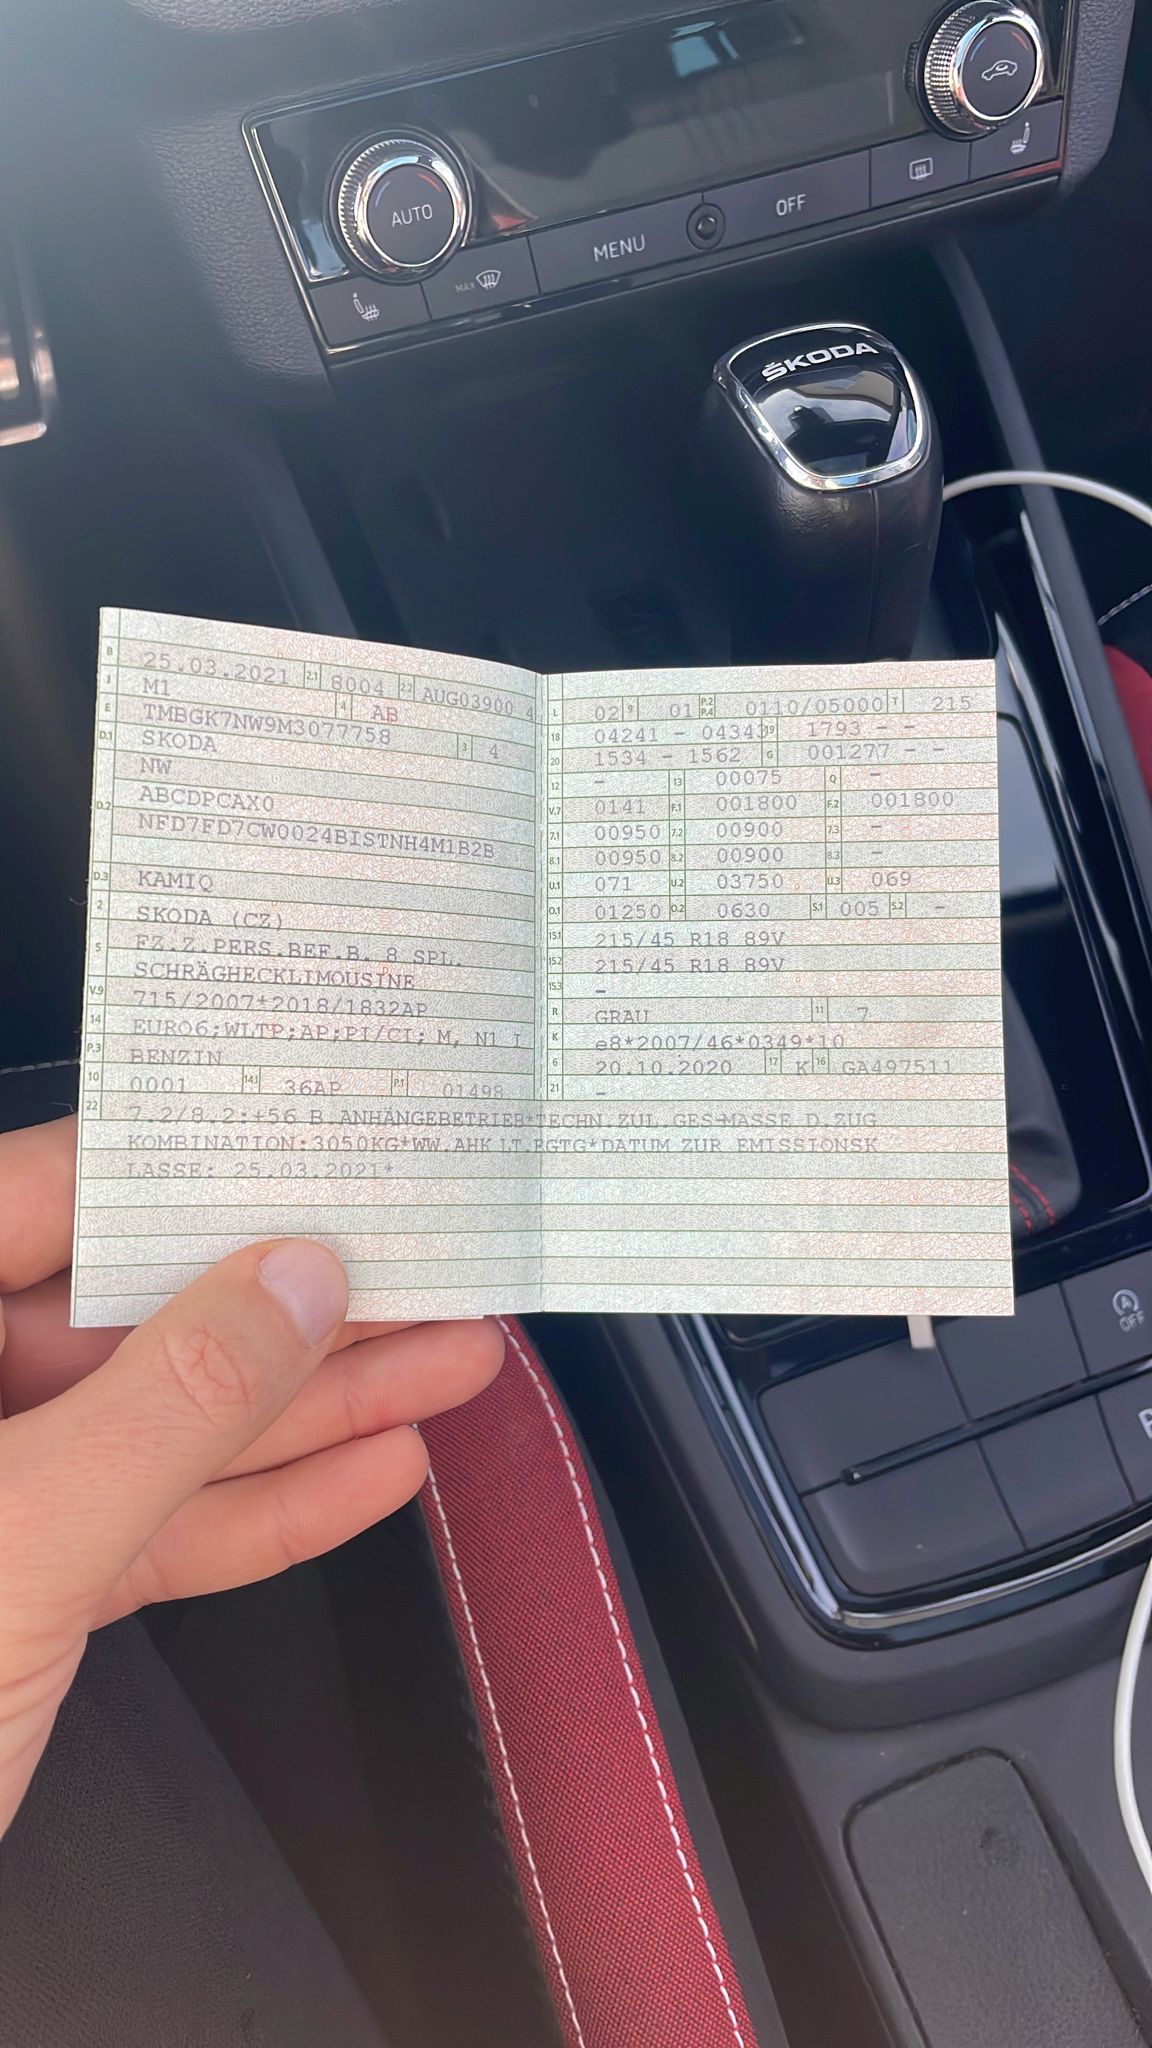 AUTO
MAX
MENU
OFF
ŠKODA
B 25.03.2021 2.1 8004 2.2 AUG03900 4
J M1 4 AB
E TMBGK7NW9M3077758 3 4
D.1 SKODA
NW
D.2 ABCDPCAX0
NFD7FD7CW0024BISTNH4M1B2B
D.3 KAMIQ
2 SKODA (CZ)
5 FZ.Z.PERS.BEF.B. 8 SPL.
SCHRÄGHECKLIMOUSINE
V.9 715/2007*2018/1832AP
14 EURO6;WLTP;AP;PI/CI; M, N1 I
P.3 BENZIN
10 0001 14.1 36AP P.1 01498
L 02 9 01 P.2 P.4 0110/05000 T 215
18 04241 - 04343 19 1793 - -
20 1534 - 1562 G 001277 - -
12 - 13 00075 Q -
V.7 0141 F.1 001800 F.2 001800
7.1 00950 7.2 00900 7.3 -
8.1 00950 8.2 00900 8.3 -
U.1 071 U.2 03750 U.3 069
O.1 01250 O.2 0630 S.1 005 S.2 -
15.1 215/45 R18 89V
15.2 215/45 R18 89V
15.3 -
R GRAU 11 7
K e8*2007/46*0349*10
6 20.10.2020 17 K 16 GA497511
21 -
22 7.2/8.2:+56 B.ANHÄNGEBETRIEB*TECHN.ZUL.GES-MASSE D.ZUG
KOMBINATION:3050KG*WW.AHK LT.EGTG*DATUM ZUR EMISSIONSK
LASSE: 25.03.2021*
A OFF